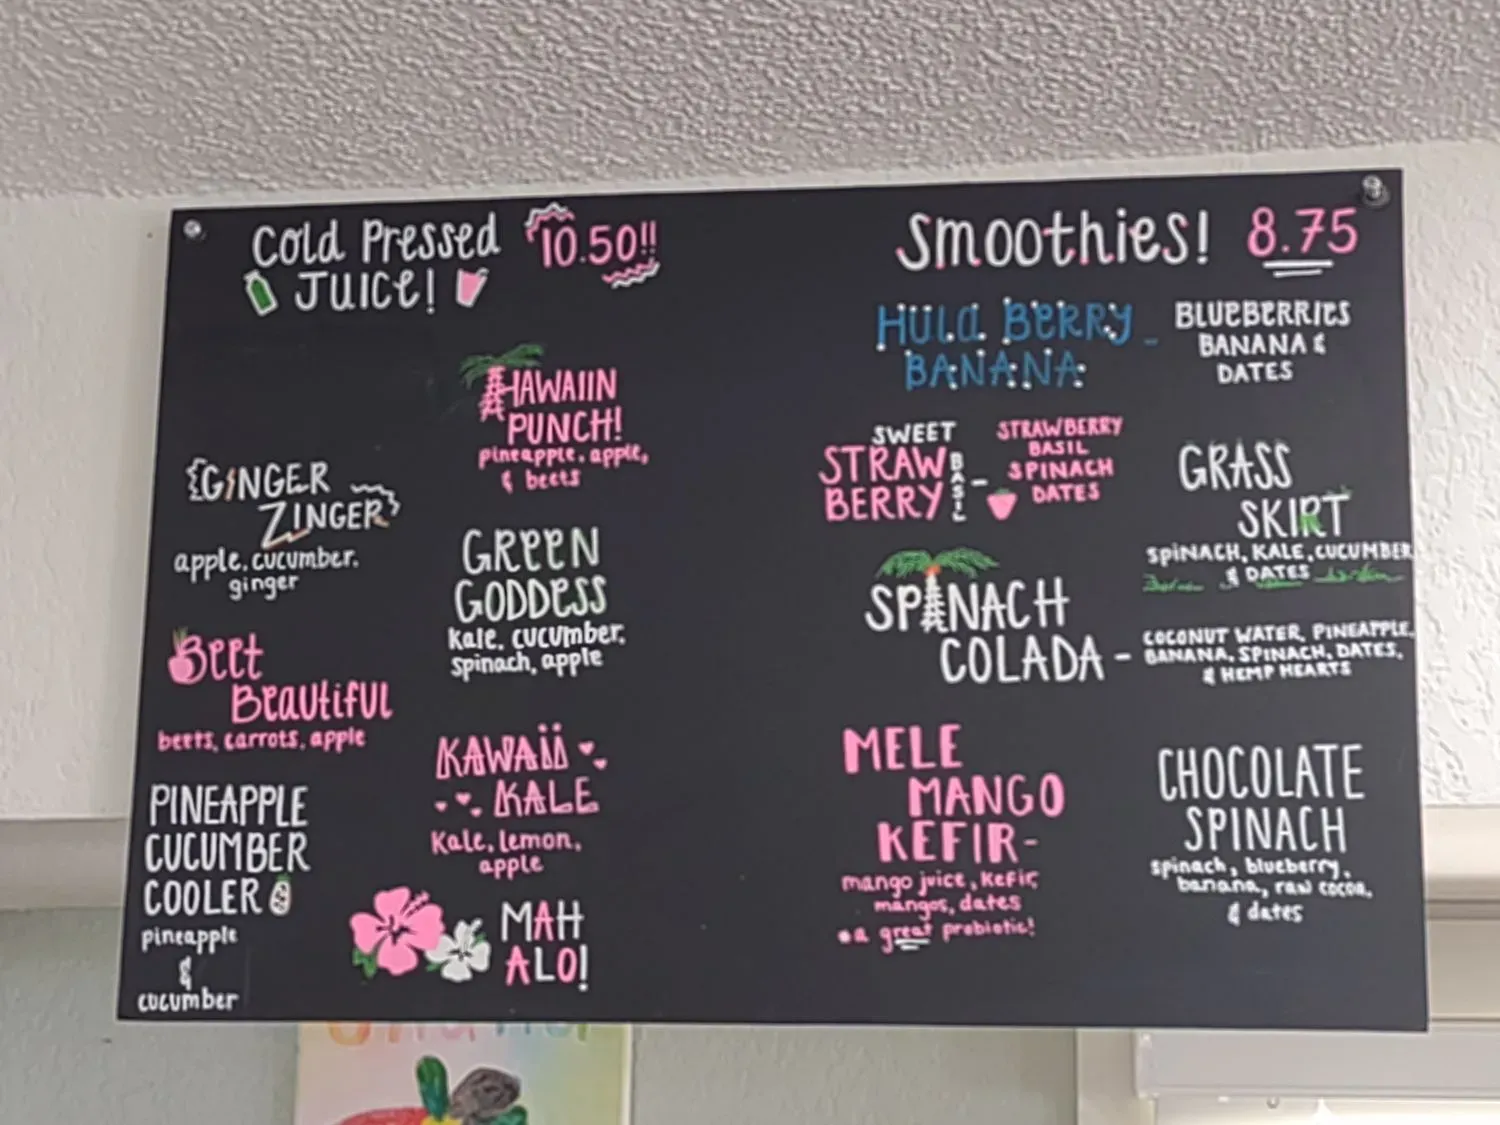 Cold Pressed
JUICE!
10.50!!
HAWAIIN
PUNCH!
pineapple, apple,
& beets
GINGER
ZINGER
apple, cucumber,
ginger
GREEN
GODDESS
Kale, cucumber,
spinach, apple
Beet
Beautiful
beets, carrots, apple
KAWAII
KALE
Kale, lemon,
apple
PINEAPPLE
CUCUMBER
COOLER
pineapple
&
cucumber
MAH
ALO!
Smoothies! 8.75
HULA BERRY -
BANANA
BLUEBERRIES
BANANA &
DATES
SWEET
STRAW
BERRY
BASIL
-
STRAWBERRY
BASIL
SPINACH
DATES
GRASS
SKIRT
SPINACH, KALE, CUCUMBER
& DATES
SPINACH
COLADA -
COCONUT WATER, PINEAPPLE,
BANANA, SPINACH, DATES,
& HEMP HEARTS
MELE
MANGO
KEFIR-
mango juice, Kefir,
mangos, dates
•a great probiotic!
CHOCOLATE
SPINACH
spinach, blueberry,
banana, raw cocoa,
& dates